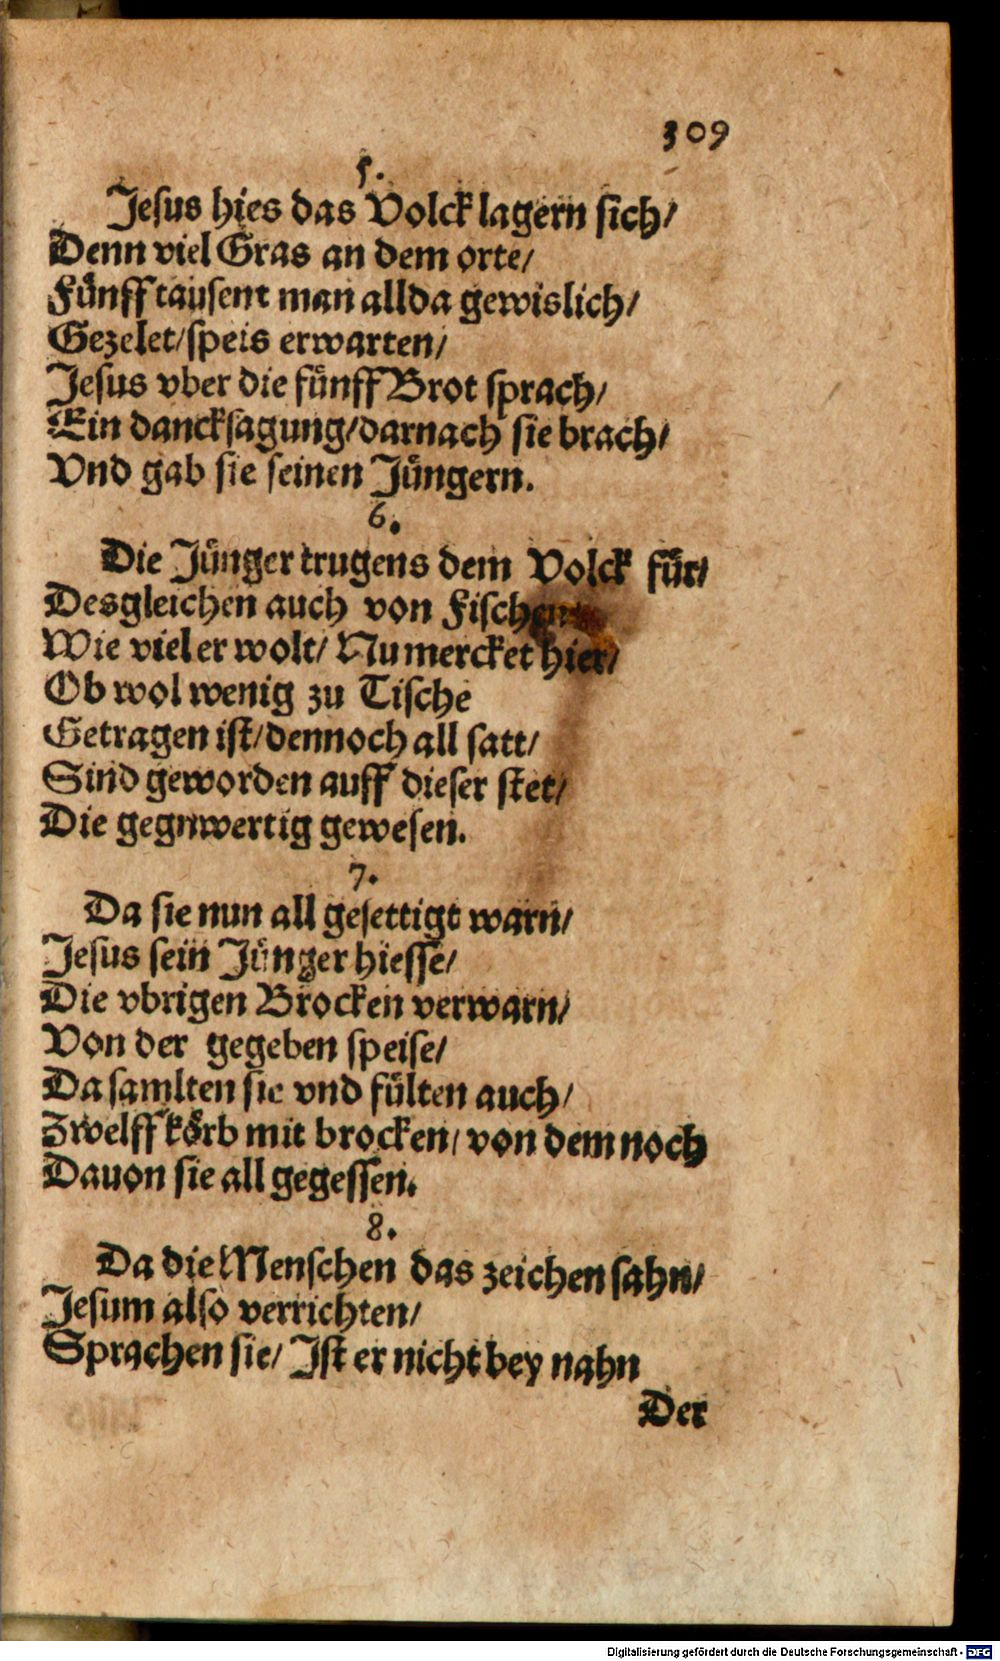 309
5.
Jesus hies das Volck lagern sich/
Denn viel Gras an dem orte/
Fuͤnff tausent man allda gewislich/
Gezelet/speis erwarten/
Jesus vber die fuͤnff Brot sprach/
Ein dancksagung/darnach sie brach/
Vnd gab sie seinen Juͤngern.
6.
Die Juͤnger trugens dem Volck fuͤr/
Desgleichen auch von Fischen/
Wie viel er wolt/ Nu mercket hier/
Ob wol wenig zu Tische
Getragen ist/dennoch all satt/
Sind geworden auff dieser stet/
Die gegnwertig gewesen.
7.
Da sie nun all gesettigt warn/
Jesus sein Juͤnger hiesse/
Die vbrigen Brocken verwarn/
Von der gegeben speise/
Da samlten sie vnd fuͤlten auch/
Zwelff koͤrb mit brocken/ von dem noch
Dauon sie all gegessen.
8.
Da die Menschen das zeichen sahn/
Jesum also verrichten/
Sprachen sie/ Jst er nicht bey nahn
Der
Digitalisierung gefördert durch die Deutsche Forschungsgemeinschaft - DFG